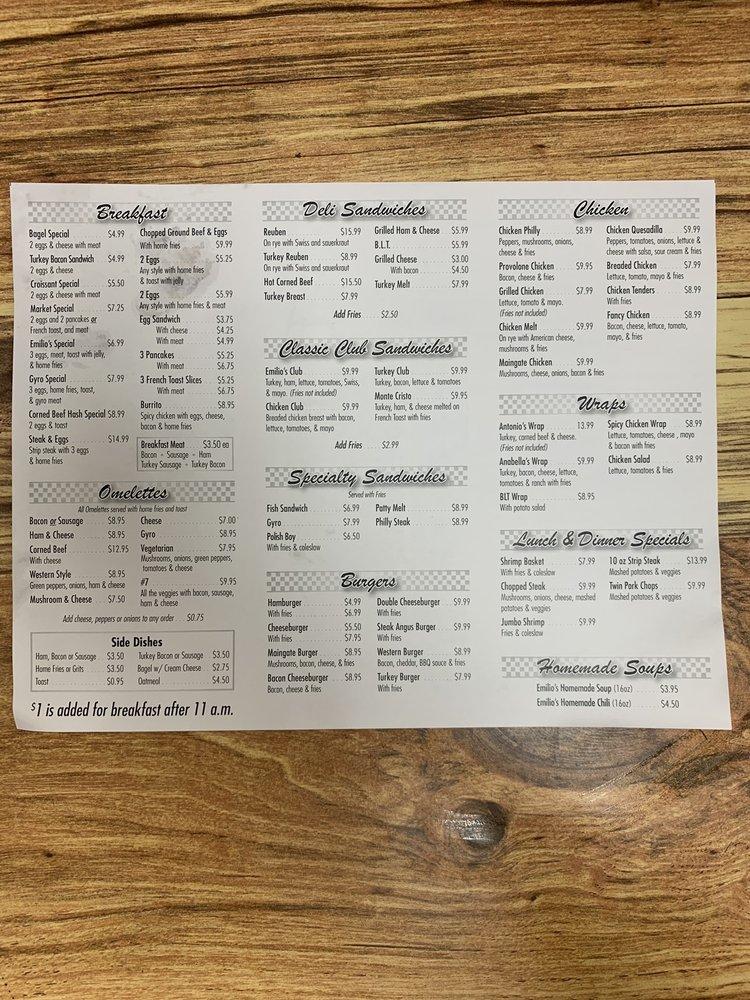 Breakfast
Bagel Special $4.99
2 eggs & cheese with meat
Turkey Bacon Sandwich $4.99
2 eggs & cheese
Croissant Special $5.50
2 eggs & cheese with meat
Market Special $7.25
2 eggs and 2 pancakes or
French toast, and meat
Emilio's Special $6.99
3 eggs, meat, toast with jelly,
& home fries
Gyro Special $7.99
3 eggs, home fries, toast,
& gyro meat
Corned Beef Hash Special $8.99
2 eggs & toast
Steak & Eggs $14.99
Strip steak with 3 eggs
& home fries
Chopped Ground Beef & Eggs
With home fries $9.99
2 Eggs $5.25
Any style with home fries
& toast with jelly
2 Eggs $5.99
Any style with home fries & meat
Egg Sandwich $3.75
With cheese $4.25
With meat $4.99
3 Pancakes $5.25
With meat $6.75
3 French Toast Slices $5.25
With meat $6.75
Burrito $8.95
Spicy chicken with eggs, cheese,
bacon & home fries
Breakfast Meat $3.50 ea
Bacon - Sausage - Ham
Turkey Sausage - Turkey Bacon
Omelettes
All Omelettes served with home fries and toast
Bacon or Sausage $8.95
Ham & Cheese $8.95
Corned Beef $12.95
With cheese
Western Style $8.95
Green peppers, onions, ham & cheese
Mushroom & Cheese $7.50
Cheese $7.00
Gyro $8.95
Vegetarian $7.95
Mushrooms, onions, green peppers,
tomatoes & cheese
#7 $9.95
All the veggies with bacon, sausage,
ham & cheese
Add cheese, peppers or onions to any order $0.75
Side Dishes
Ham, Bacon or Sausage $3.50
Home Fries or Grits $3.50
Toast $0.95
Turkey Bacon or Sausage $3.50
Bagel w/ Cream Cheese $2.75
Oatmeal $4.50
$1 is added for breakfast after 11 a.m.
Deli Sandwiches
Reuben $15.99
On rye with Swiss and sauerkraut
Turkey Reuben $8.99
On rye with Swiss and sauerkraut
Hot Corned Beef $15.50
Turkey Breast $7.99
Grilled Ham & Cheese $5.99
B.L.T. $5.99
Grilled Cheese $3.00
With bacon $4.50
Turkey Melt $7.99
Add Fries $2.50
Classic Club Sandwiches
Emilio's Club $9.99
Turkey, ham, lettuce, tomatoes, Swiss,
& mayo. (Fries not included)
Chicken Club $9.99
Breaded chicken breast with bacon,
lettuce, tomatoes, & mayo
Turkey Club $9.99
Turkey, bacon, lettuce & tomatoes
Monte Cristo $9.95
Turkey, ham, & cheese melted on
French Toast with fries
Add Fries $2.99
Specialty Sandwiches
Served with Fries
Fish Sandwich $6.99
Gyro $7.99
Polish Boy $6.50
With fries & coleslaw
Patty Melt $8.99
Philly Steak $8.99
Burgers
Hamburger $4.99
With fries $6.99
Cheeseburger $5.50
With fries $7.95
Maingate Burger $8.95
Mushrooms, bacon, cheese, & fries
Bacon Cheeseburger $8.95
Bacon, cheese & fries
Double Cheeseburger $9.99
With fries
Steak Angus Burger $9.99
With fries
Western Burger $8.99
Bacon, cheddar, BBQ sauce & fries
Turkey Burger $7.99
With fries
Chicken
Chicken Philly $8.99
Peppers, mushrooms, onions,
cheese & fries
Provolone Chicken $9.95
Bacon, cheese & fries
Grilled Chicken $7.99
Lettuce, tomato & mayo.
(Fries not included)
Chicken Melt $9.99
On rye with American cheese,
mushrooms & fries
Maingate Chicken $9.99
Mushrooms, cheese, onions, bacon & fries
Chicken Quesadilla $9.99
Peppers, tomatoes, onions, lettuce &
cheese with salsa, sour cream & fries
Breaded Chicken $7.99
Lettuce, tomato, mayo & fries
Chicken Tenders $8.99
With fries
Fancy Chicken $8.99
Bacon, cheese, lettuce, tomato,
mayo, & fries
Wraps
Antonio's Wrap 13.99
Turkey, corned beef & cheese.
(Fries not included)
Anabella's Wrap $9.99
Turkey, bacon, cheese, lettuce,
tomatoes & ranch with fries
BLT Wrap $8.95
With potato salad
Spicy Chicken Wrap $8.99
Lettuce, tomatoes, cheese , mayo
& bacon with fries
Chicken Salad $8.99
Lettuce, tomatoes & fries
Lunch & Dinner Specials
Shrimp Basket $7.99
With fries & coleslaw
Chopped Steak $9.99
Mushrooms, onions, cheese, mashed
potatoes & veggies
Jumbo Shrimp $9.99
Fries & coleslaw
10 oz Strip Steak $13.99
Mashed potatoes & veggies
Twin Pork Chops $9.99
Mashed potatoes & veggies
Homemade Soups
Emilio's Homemade Soup (16oz) $3.95
Emilio's Homemade Chili (16oz) $4.50